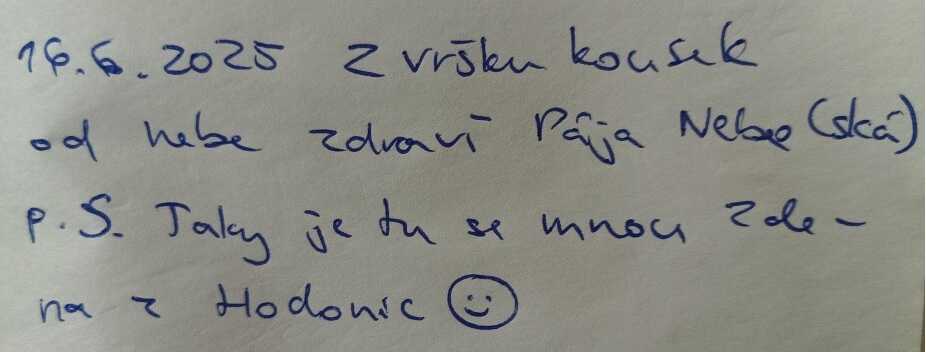 16.6.2025 Z vršku kousek
od nebe zdraví Pája Nebe(ská)
p.S. Taky je tu se mnou Zde-
na z Hodonic ☺